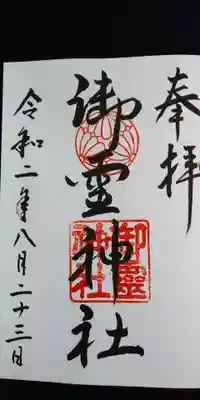 奉拝
御霊神社
御靈神社
令和二年八月二十三日